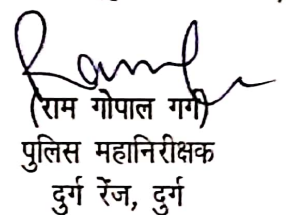 (राम गोपाल गर्ग)
पुलिस महानिरीक्षक
दुर्ग रेंज, दुर्ग